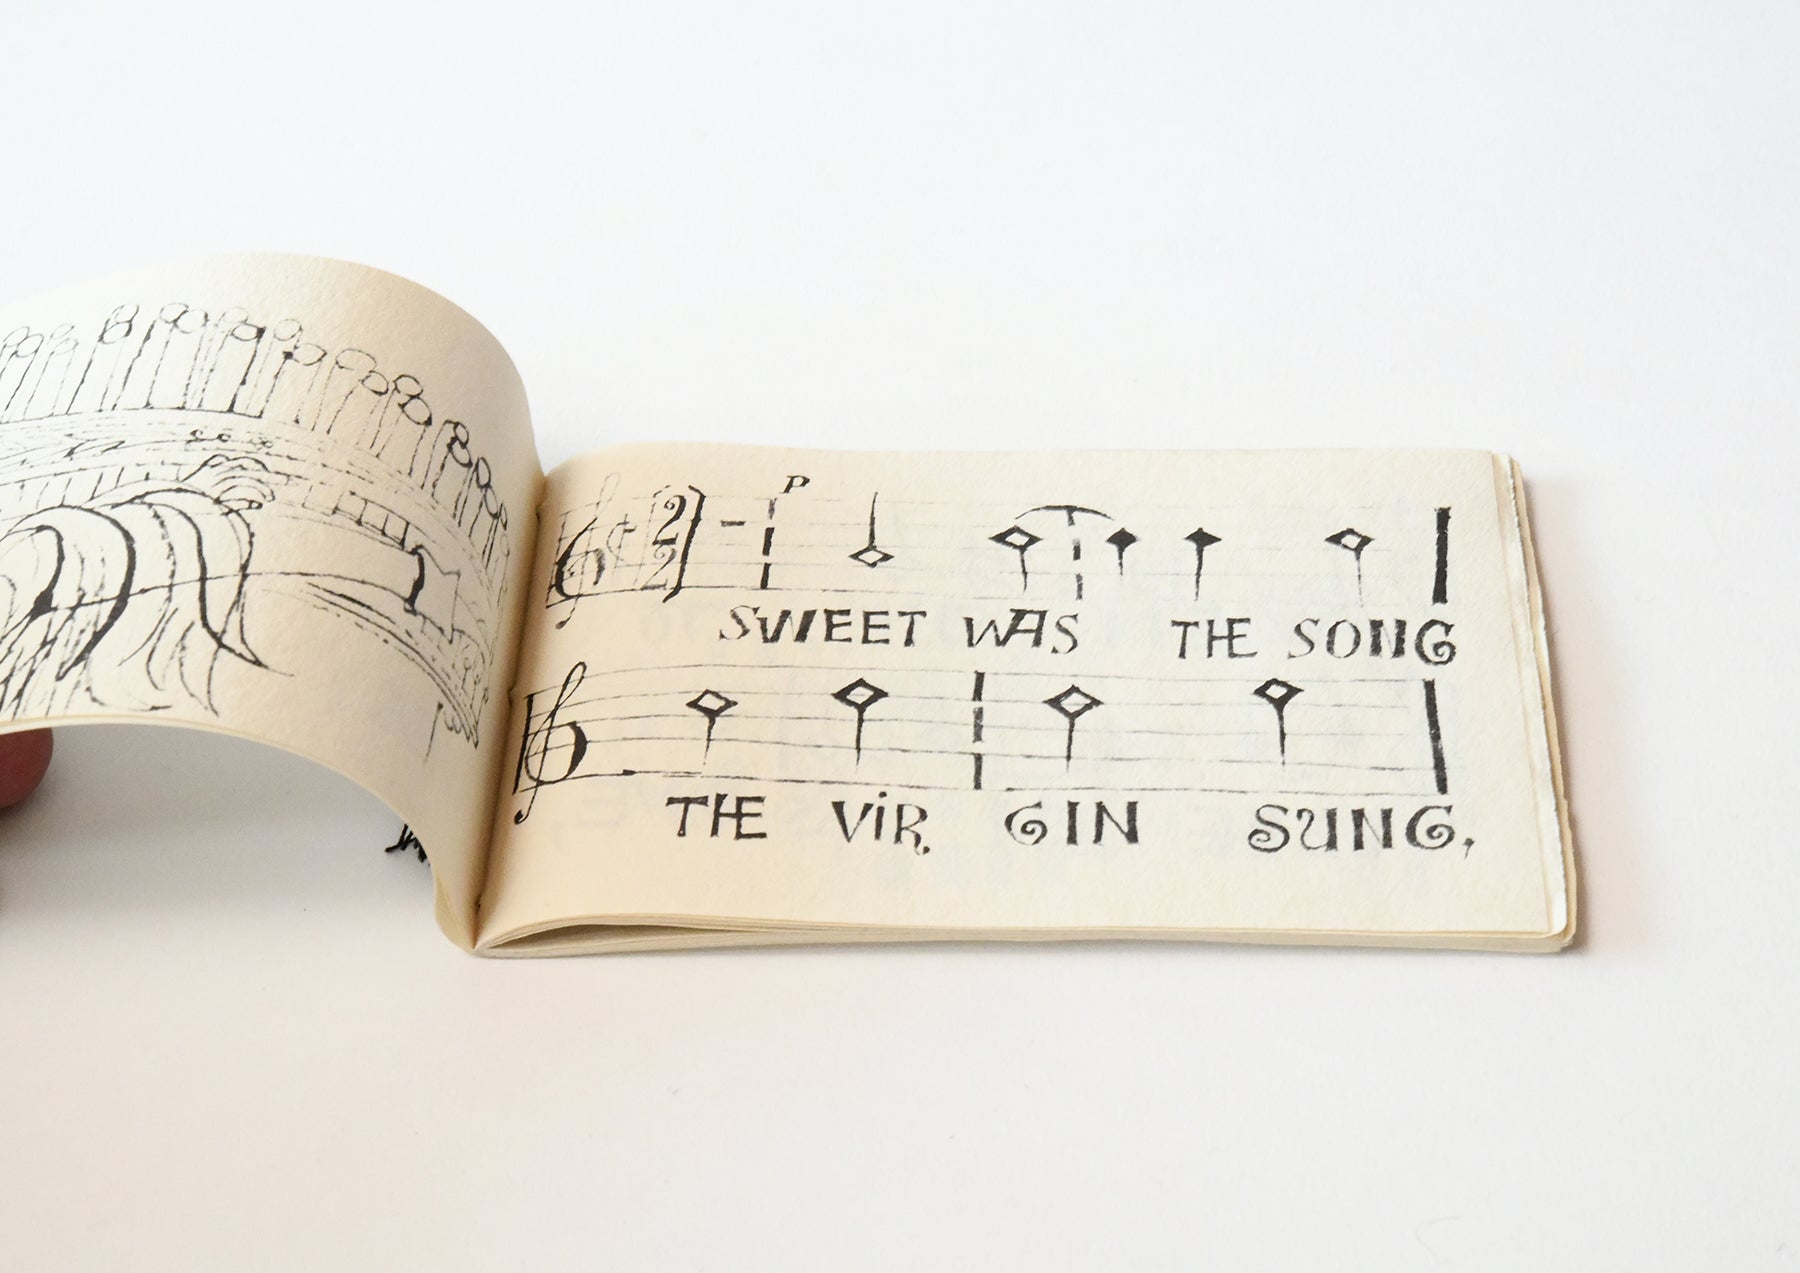 [2/2] P
SWEET WAS THE SONG
THE VIR GIN SUNG,